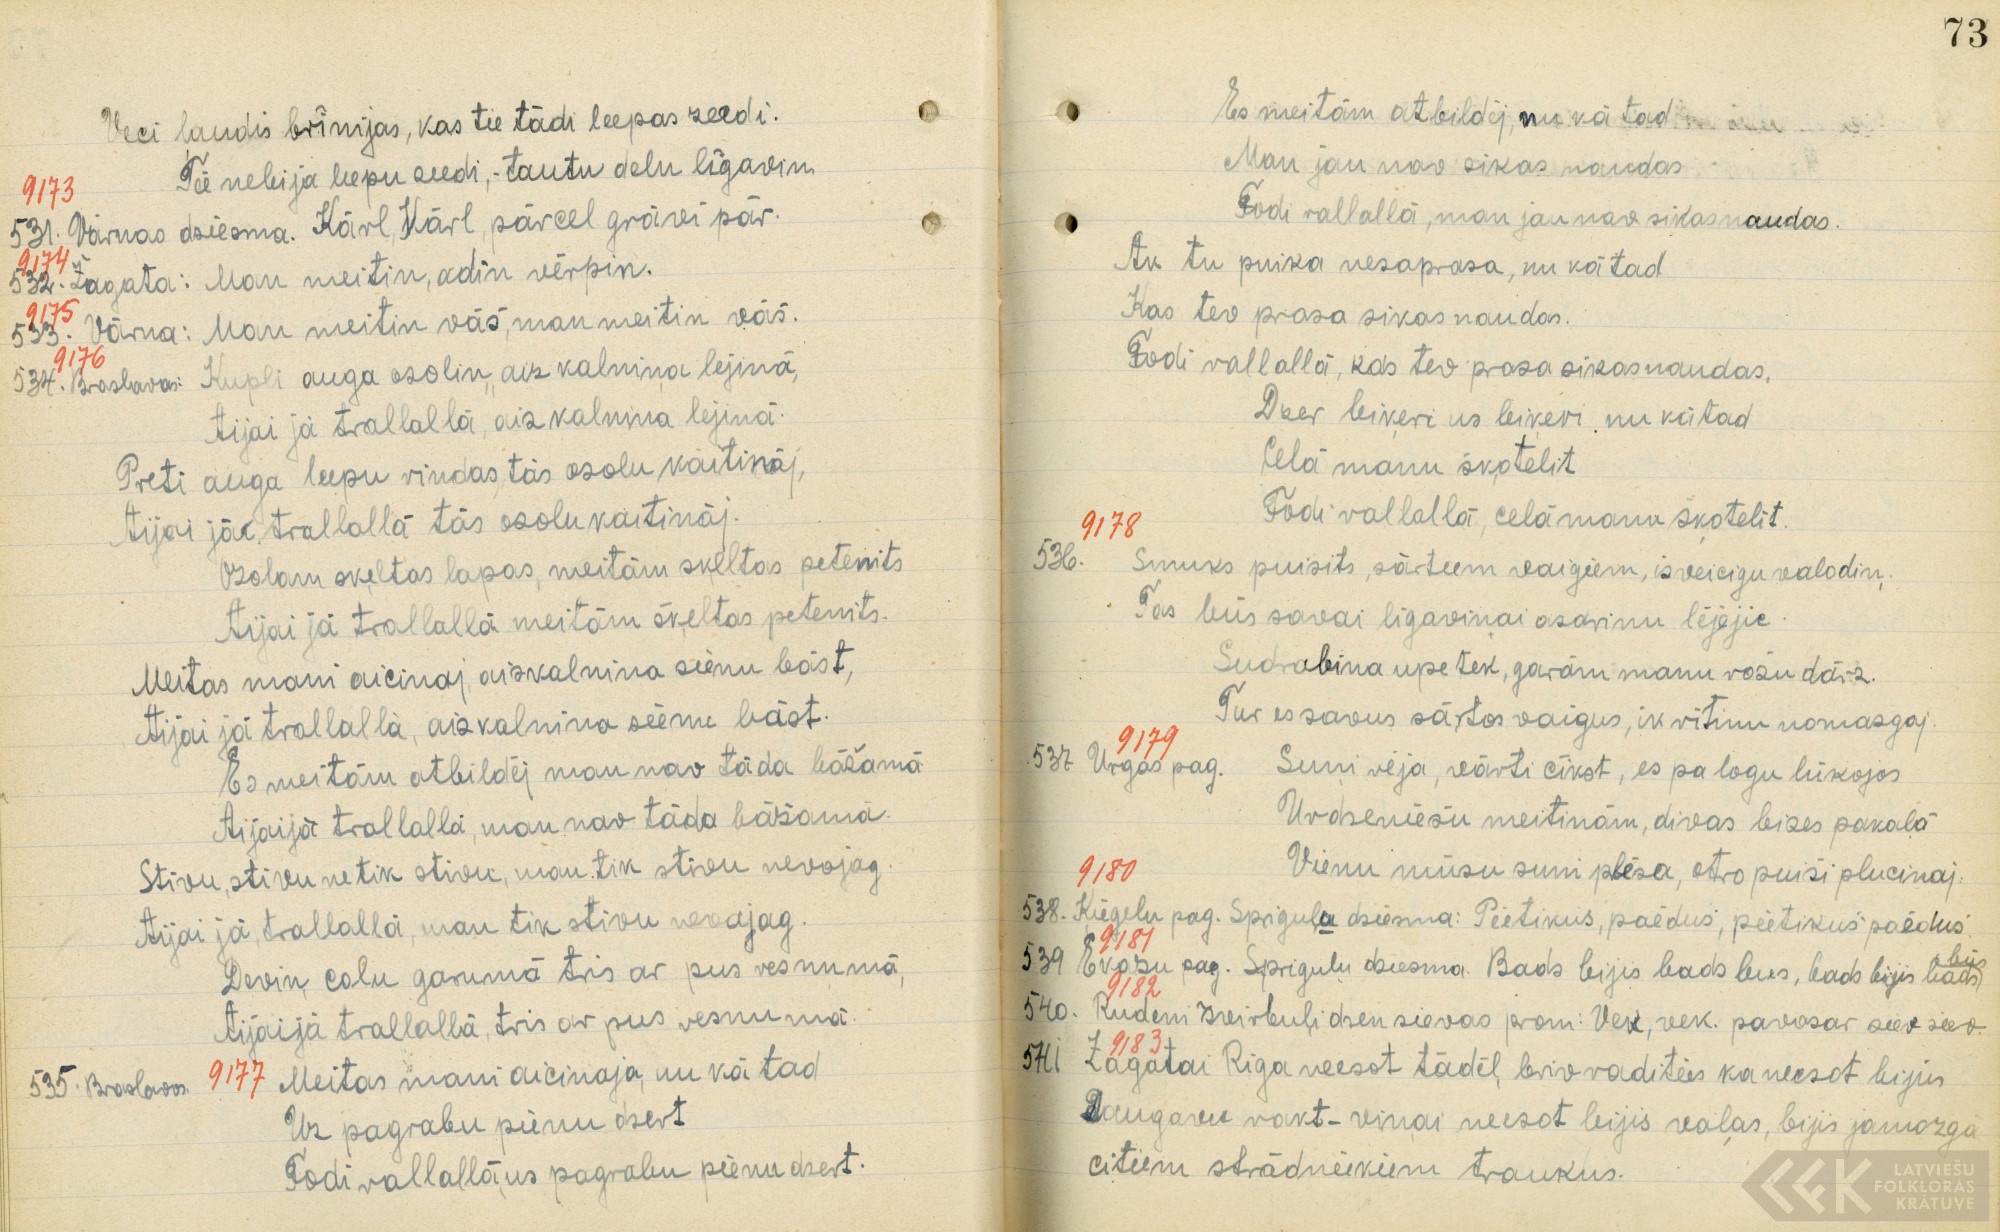 Veci ļaudis brīnijas, kas tie tādi leepas zeedi.
Tie nebija leepu zeedi,- tautu delu līgavin
9173
531. Vārnas dziesma. Kārl, Kārl, pārcel grāvi pār.
9174
532. Žagata: Man meitin, adīn vērpin.
9175
533. Vārna: Man meitin vāš, man meitin vāš.
9176
534. Braslavas: Kupli auga osolin, aiz kalniņa lejiņā,
Aijai jā trallallā, aiz kalniņa lejiņā.
Preti auga leepu rindas, tās osolu kaitināj,
Aijai jā, trallallā tās osolu kaitināj.
Ozolam sķeltas lapas, meitām sķeltas petenits
Aijai jā trallallā meitām šķeltas petenits.
Meitas mani aicinaj, aiskalniņa sienu bāst,
Aijai jā trallallā, aiz kalniņa sienu bāst.
Es meitām atbildēj man nav tāda bāžamā
Aijaijā trallallā, man nav tāda bāžamā.
Stīvu, stīvu netik stivu, man tik stivu nevajag.
Aijai jā, trallallā, man tik stivu nevajag.
Deviņ colu garumā tris ar pus resnumā,
Aijaijā trallallā, tris ar pus resnumā.
535. Braslavas 9177 Meitas mani aicinaja, nu kā tad
Uz pagrabu pienu dzert
Fodi rallallā, us pagrabu pienu dzert.
73
Es meitām atbildēj, nu kā tad
Man jau nav sikas naudas
Fodi rallallā, man jau nav sikas naudas.
Ak tu puika nesaprasa, nu kā tad
Kas tev prasa sikas naudas.
Fodi rallallā, kas tev prasa sikas naudas.
Dzer biķeri us biķeri nu kā tad
Celā manu šķotelit
Fodi rallallā, celā manu šķotelit.
9178
536. Smuks puisits, sārteem vaigiem, isveicigu valodiņ.
Tas būs savai līgaviņai asariņu lējējic.
Sudrabiņa upe tek, garām manu rožu dārz.
Tur es savus sārtos vaigus, ik ritiņu nomasgaj.
9179
537 Urgas pag. Suņi rēja, vārti cīkst, es pa logu lūkojos
Urdzeniešu meitiņām, divas bizes pakaļā
Vienu mūsu suņi plēsa, otro puiši plucinaj.
9180
538. Ķiēgeļu pag. Spriguļa dziesma: Piētikus, paēdus, piētikus paēdus.
9181
539 Evažu pag. Spriguļu dziesma. Bads bijis bads būs, bads bijis bads būs
9182
540. Rudeni zvirbuļi dzen sievas prom: Vek, vek. pavasar seev seev.
9183
541 Žagatai Riga neesot tādēļ, briv radities ka neesot bijis
Daugavu rakt- viņai neesot bijis vaļas, bijis jamazgā
citiem strādniēkiem traukus.
LATVIEŠU
FOLKLORAS
KRĀTUVE